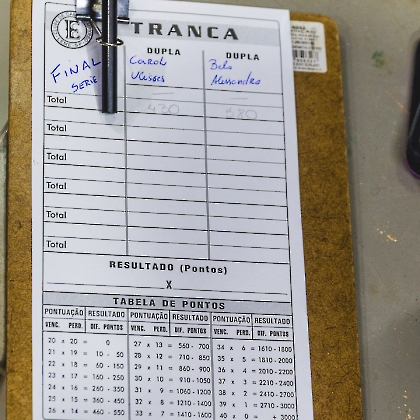 TRANCA
DUPLA DUPLA
FINAL
SERIE
Carol
Ulisses
Alessandro
Total 430 580
Total
Total
Total
Total
Total
RESULTADO (Pontos)
X
TABELA DE PONTOS
PONTUAÇÃO RESULTADO PONTUAÇÃO RESULTADO PONTUAÇÃO RESULTADO
VENC. PERD. DIF. PONTOS VENC. PERD. DIF. PONTOS VENC. PERD. DIF. PONTOS
20 x 20 = 0 27 x 13 = 560 - 700 34 x 6 = 1610-1800
21 x 19 = 10 - 50 28 x 12 = 710 - 850 35 x 5 = 1810-2000
22 x 18 = 60 - 150 29 x 11 = 860 - 900 36 x 4 = 2010-2200
23 x 17 = 160 - 250 30 x 10 = 910-1050 37 x 3 = 2210-2400
24 x 16 = 260 - 350 31 x 9 = 1060-1200 38 x 2 = 2410-2700
25 x 15 = 360 - 450 32 x 8 = 1210-1400 39 x 1 = 2710-3000
26 x 14 = 460 - 550 33 x 7 = 1410-1600 40 x 0 = + 3000